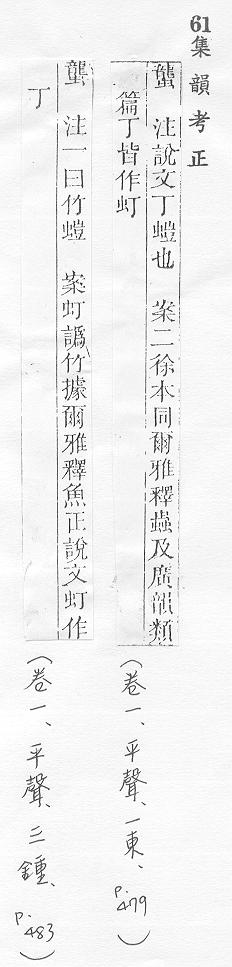 61集韻考正
蠪 注說文丁螘也 案二徐本同爾雅釋蟲及廣韻類
篇丁皆作虰
(卷一、平聲、一東、p.479)
蠪 注一曰竹螘 案虰譌竹據爾雅釋魚正說文虰作
丁
(卷一、平聲、三鍾、p.483)